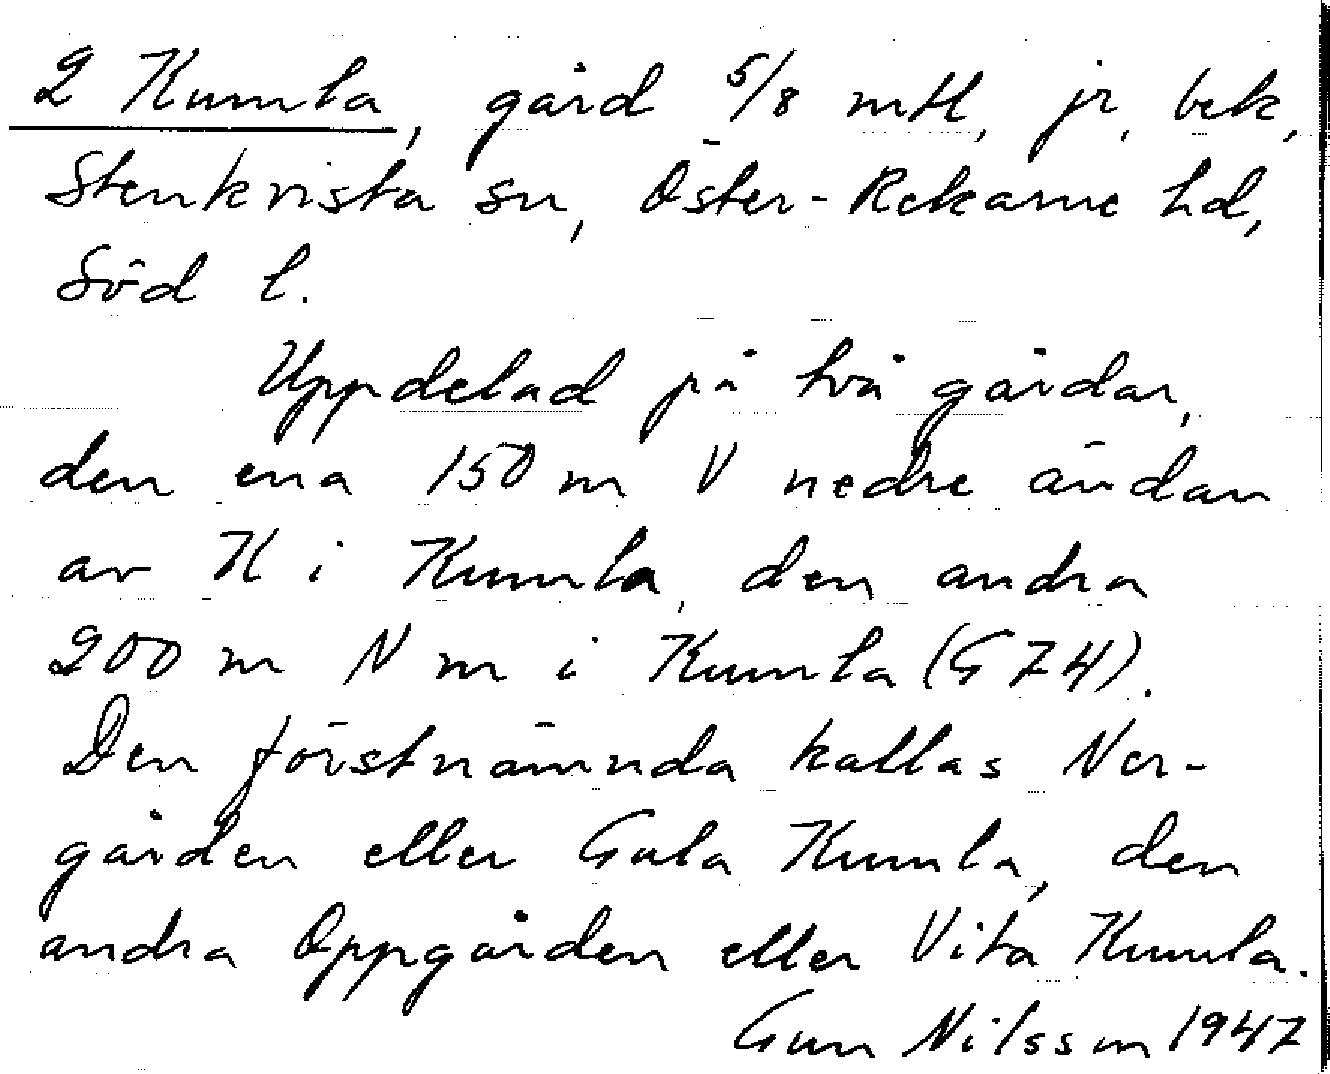 2 Kumla, gård 5/8 mtl, jr, bek,
Stenkvista sn, Öster-Rekarne hd,
Söd l.
Uppdelad på två gårdar,
den ena 150 m V nedre ändan
av K i Kumla, den andra
200 m N m i Kumla (G 74).
Den förstnämnda kallas Ner-
gården eller Gula Kumla, den
andra Oppgården eller Vita Kumla.
Gun Nilsson 1947